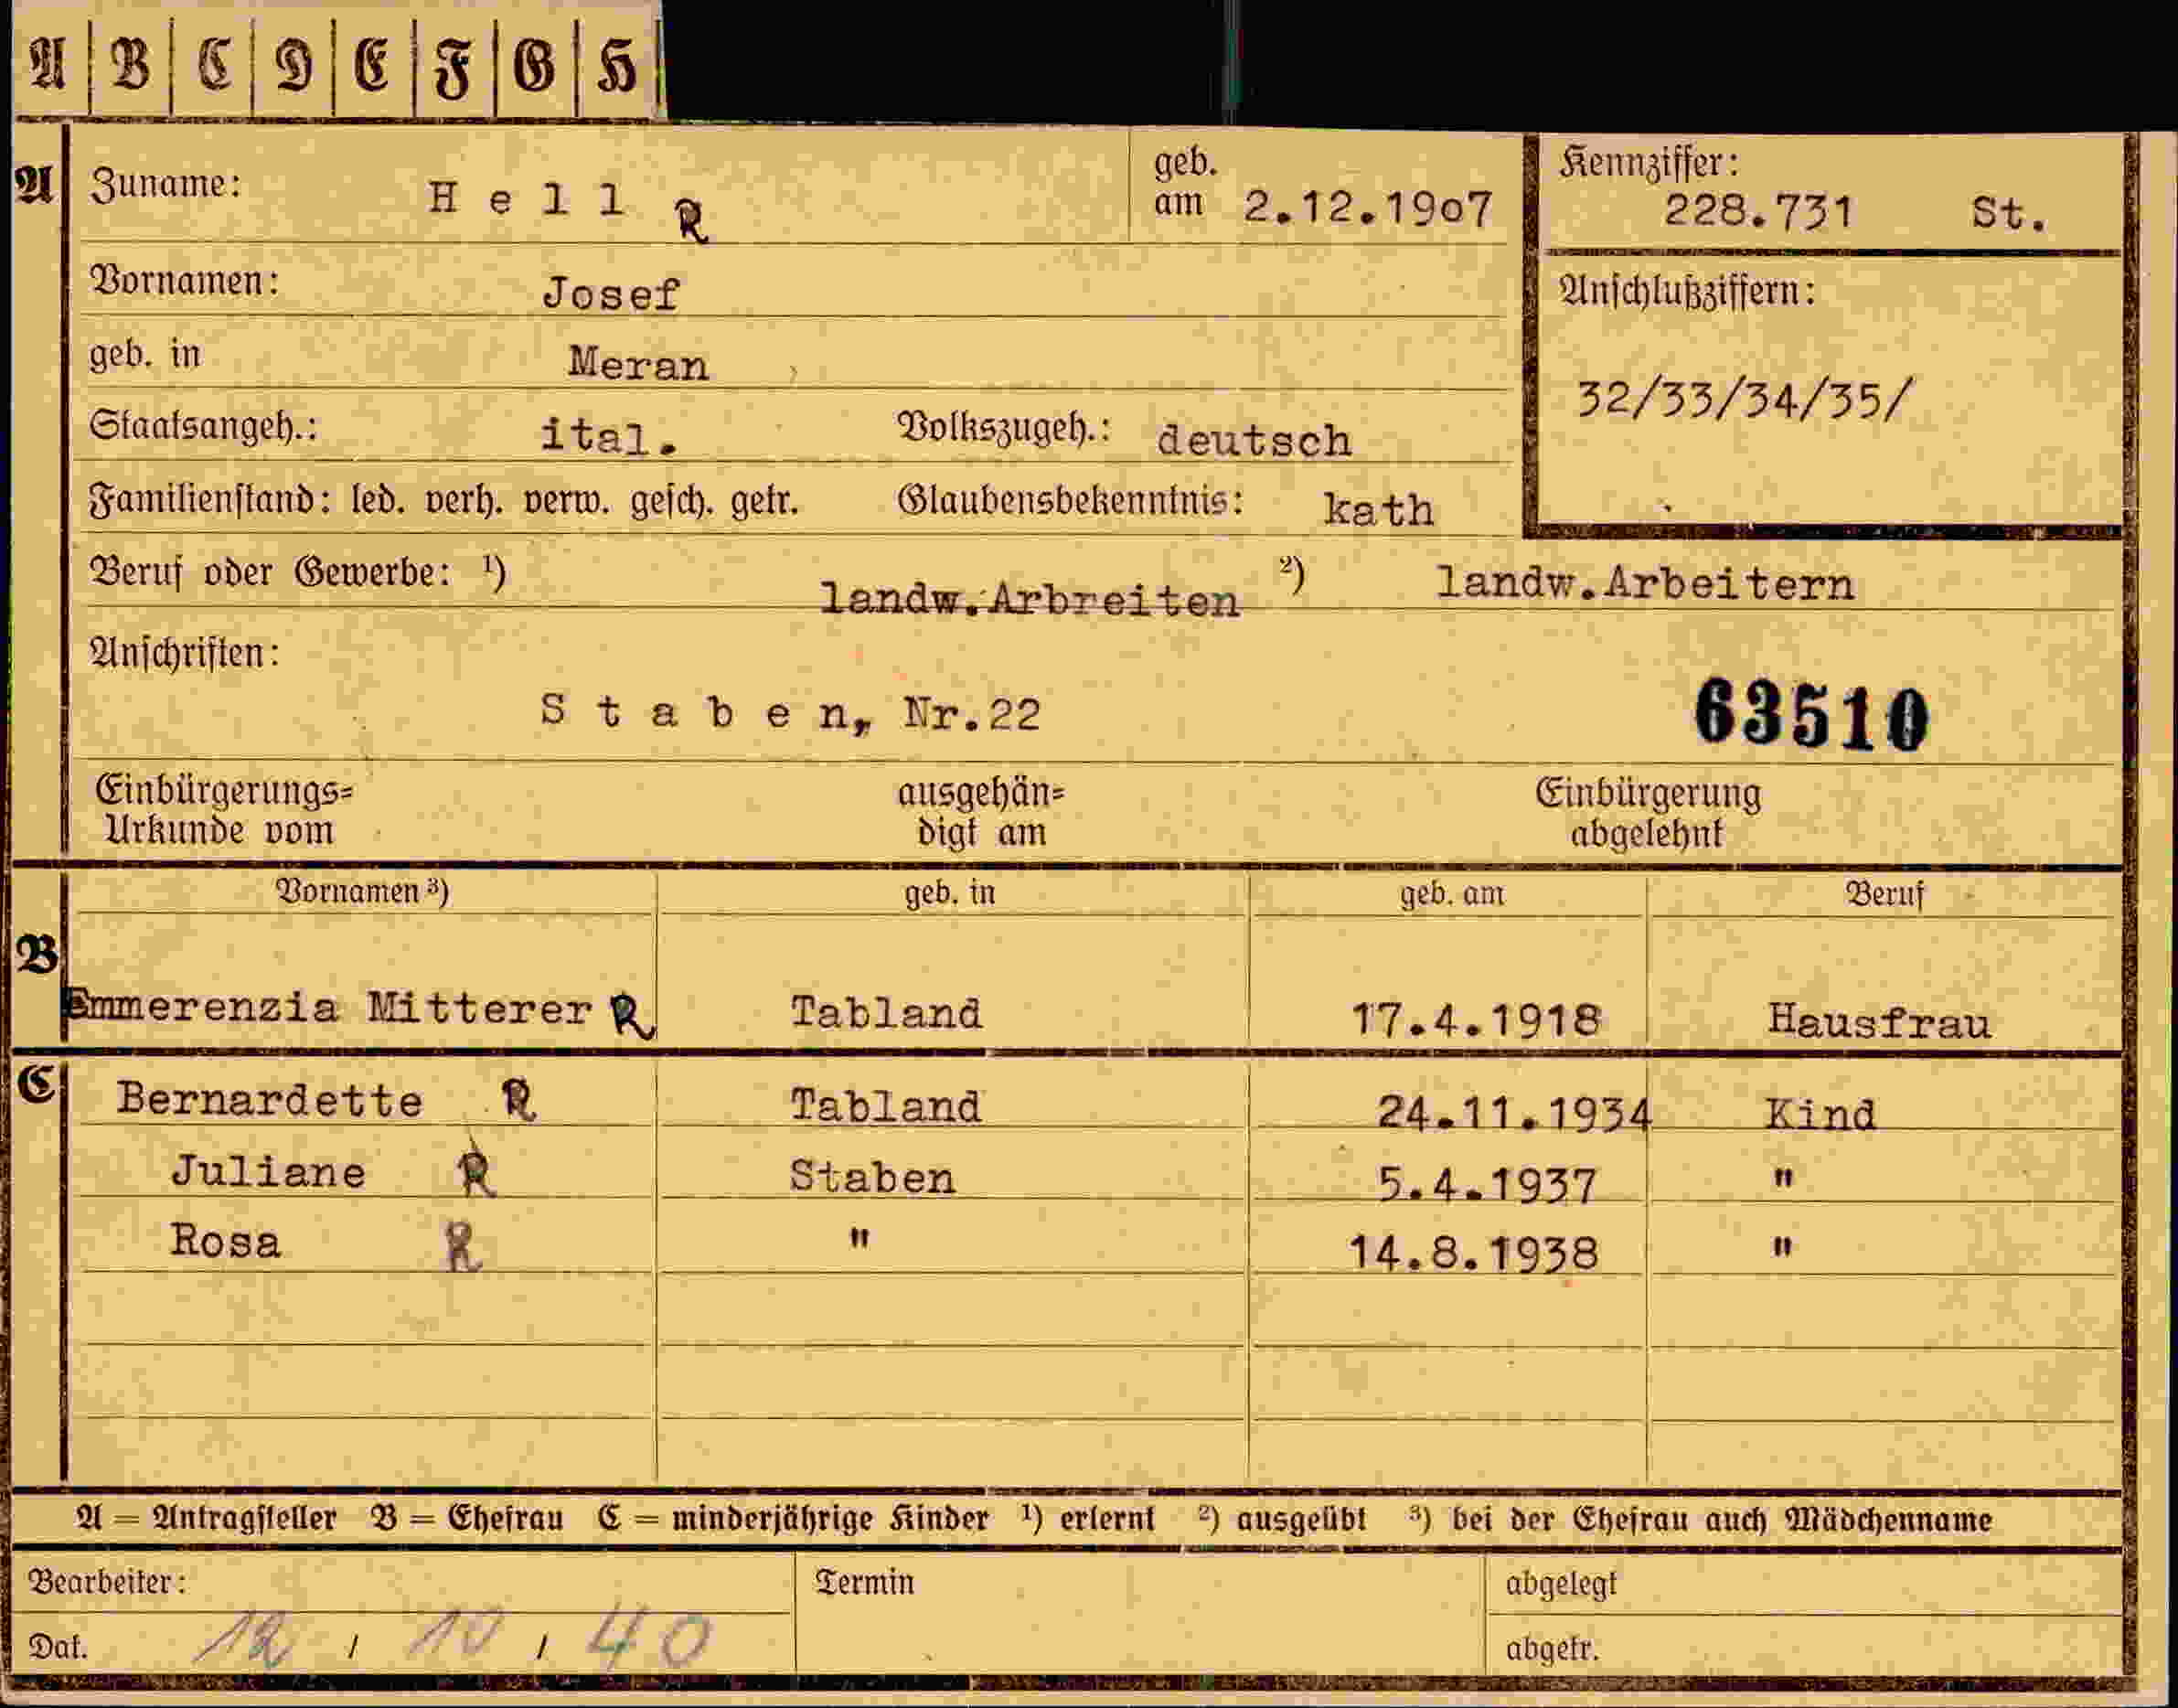 A B C D E F G H
A Zuname: Hell R geb. am 2.12.1907 Kennziffer: 228.731 St.
Vornamen: Josef Anschlußziffern:
geb. in Meran 32/33/34/35/
Staatsangeh.: ital. Volkszugeh.: deutsch
Familienstand: led. verh. verw. gesch. getr. Glaubensbekenntnis: kath
Beruf oder Gewerbe: ¹) landw.Arbreiten ²) landw.Arbeitern
Anschriften:
Staben, Nr.22 63510
Einbürgerungs= ausgehän= Einbürgerung
Urkunde vom digt am abgelehnt
Vornamen ³) geb. in geb. am Beruf
B
Emmerenzia Mitterer R Tabland 17.4.1918 Hausfrau
C Bernardette R Tabland 24.11.1934 Kind
Juliane R Staben 5.4.1937 "
Rosa R " 14.8.1938 "
A = Antragsteller B = Ehefrau C = minderjährige Kinder ¹) erlernt ²) ausgeübt ³) bei der Ehefrau auch Mädchenname
Bearbeiter: Termin abgelegt
Dat. 12 / 10 / 40 abgetr.